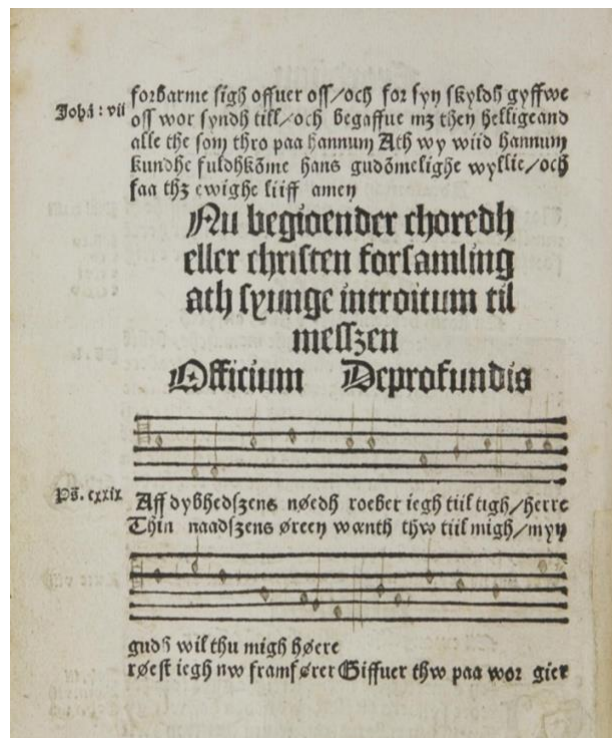 forbarme sigh offuer oss/och for syn skyldh gyffwe
Johā: vii
oss wor syndh till/och begaffue mz then helligeand
alle the som thro paa hannum Ath wy wiid hannum
kundhe fuldhkōme hans gudōmelighe wyllie/och
faa thz ewighe liiff amen
Nu begiøender choredh
eller christen forsamling
ath syunge introitum til
messzen
Officium Deprofundis
Ps. cxxix
Aff dybhedszens nøedh roeber iegh tiil tigh/herre
Thin naadszens øreen wænth thw tiil migh/myn
gudh wil thu migh høere
røest iegh nw framfører Giffuer thw paa wor gier